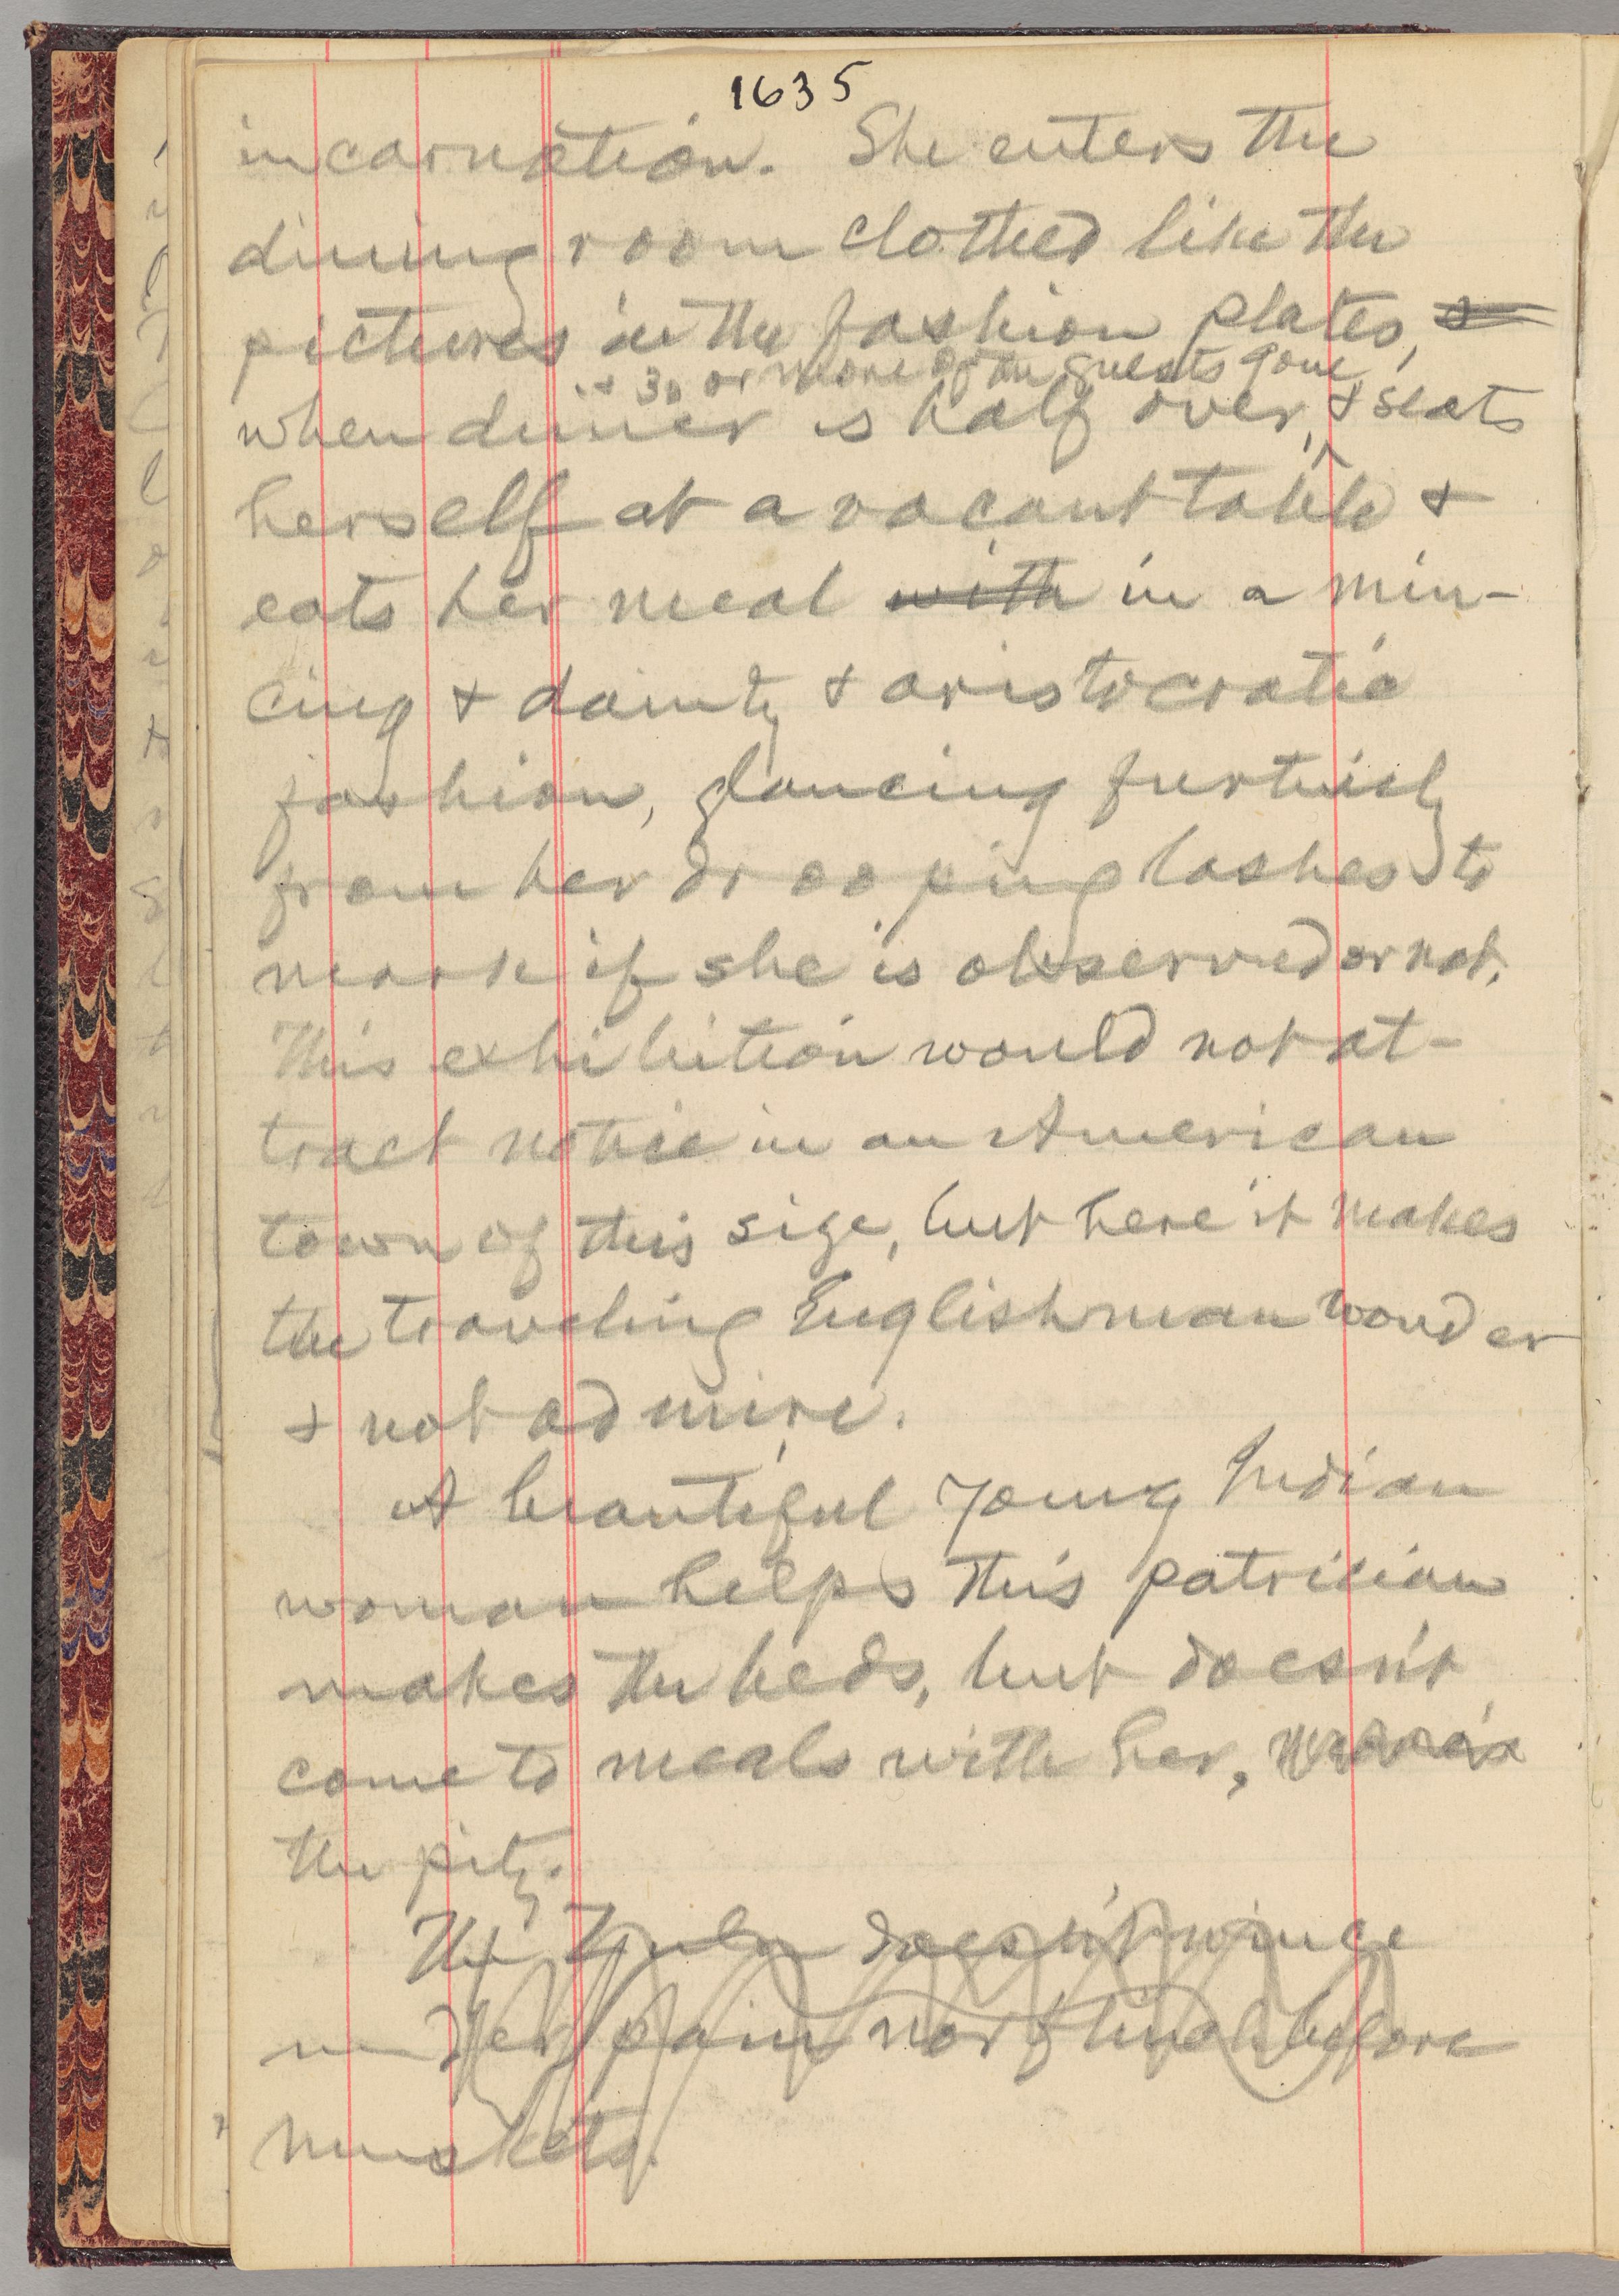 1635
incarnation. She enters the
dining room clothed like the
pictures in the fashion plates, &
& 30 or more of the guests gone
when dinner is half over, & seats
herself at a vacant table &
eats her meal with in a min-
cing & dainty & aristocratic
fashion, glancing furtively
from her drooping lashes to
mark if she is observed or not.
This exhibition would not at-
tract notice in an American
town of this size, but here it makes
the traveling Englishman wonder
& not admire.
A beautiful young Indian
woman helps this patrician
makes the beds, but doesn't
come to meals with her,
the pity.
The doesn't wince
under pain nor flinch before
muskets.